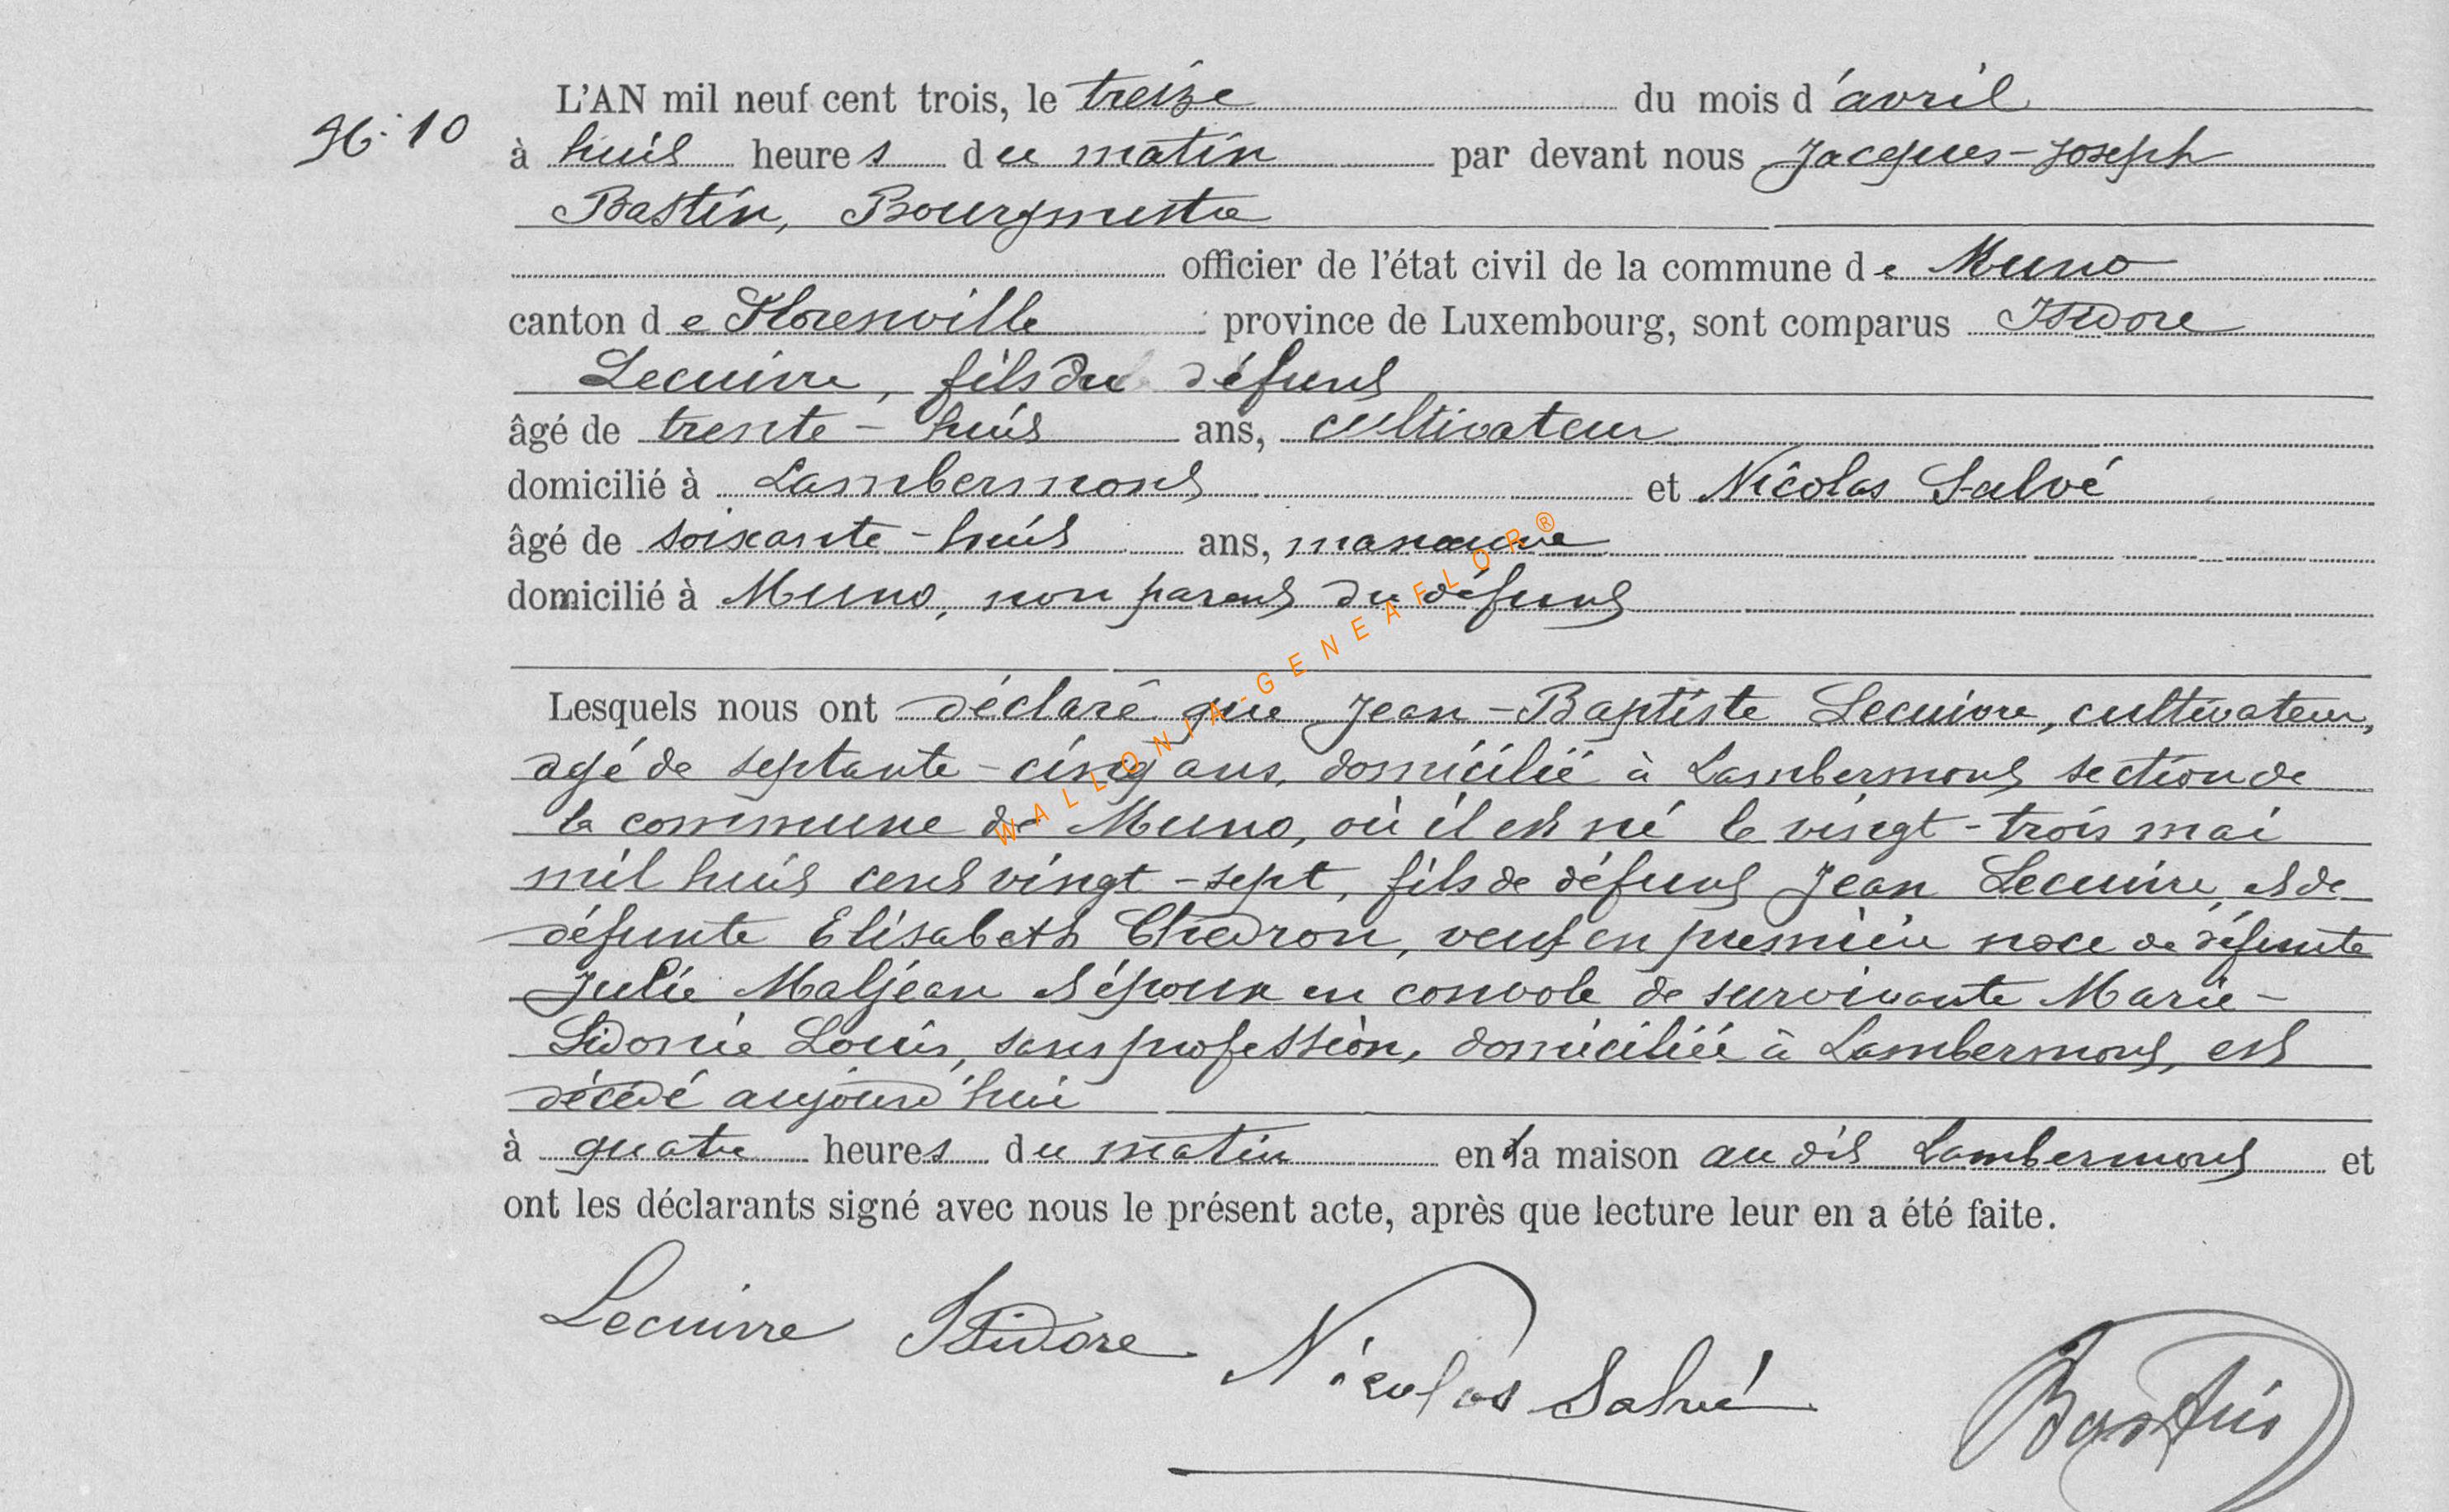 N° 10
L'AN mil neuf cent trois, le treize du mois d'avril
à huit heures du matin par devant nous Jacques-Joseph
Bastin, Bourgmestre
officier de l'état civil de la commune de Muno
canton de Florenville province de Luxembourg, sont comparus Isidore
Lecuivre, fils du défunt
âgé de trente-huit ans, cultivateur
domicilié à Lambermont et Nicolas Salvé
âgé de soixante-huit ans, manœuvre
domicilié à Muno, non parent du défunt
Lesquels nous ont déclaré que Jean-Baptiste Lecuivre, cultivateur,
agé de septante-cinq ans, domicilié à Lambermont section de
la commune de Muno, où il est né le vingt-trois mai
mil huit cent vingt-sept, fils de défunt Jean Lecuivre, et de
défunte Elisabeth Chédron, veuf en première noce de défunte
Julie Maljean et époux en convole de survivante Marie-
Sidonie Louis, sans profession, domiciliée à Lambermont, est
décédé aujourd'hui
à quatre heures du matin en sa maison au dit Lambermont et
ont les déclarants signé avec nous le présent acte, après que lecture leur en a été faite.
Lecuivre Isidore Nicolas Salvé Bastin
WALLONIA-GENEAFLOR®